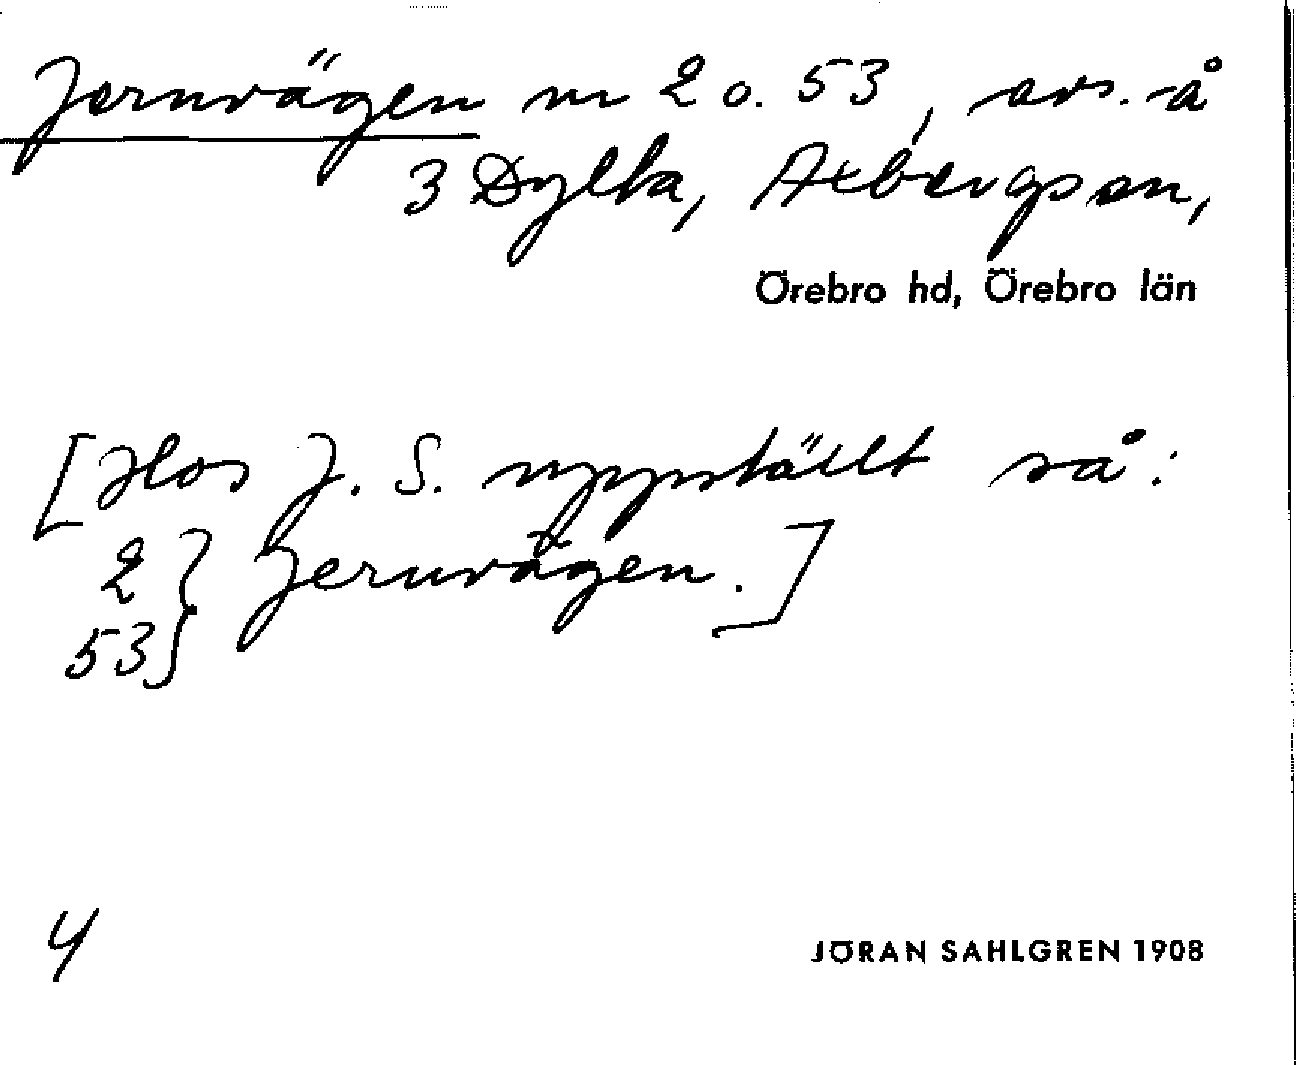 Jernvägen nr 2 o. 53, avs. å
3 Dylta, Axbergs sn,
Örebro hd, Örebro län
[Hos J. S. uppställt så:
2 } Jernvägen.]
53 }
4
JÖRAN SAHLGREN 1908